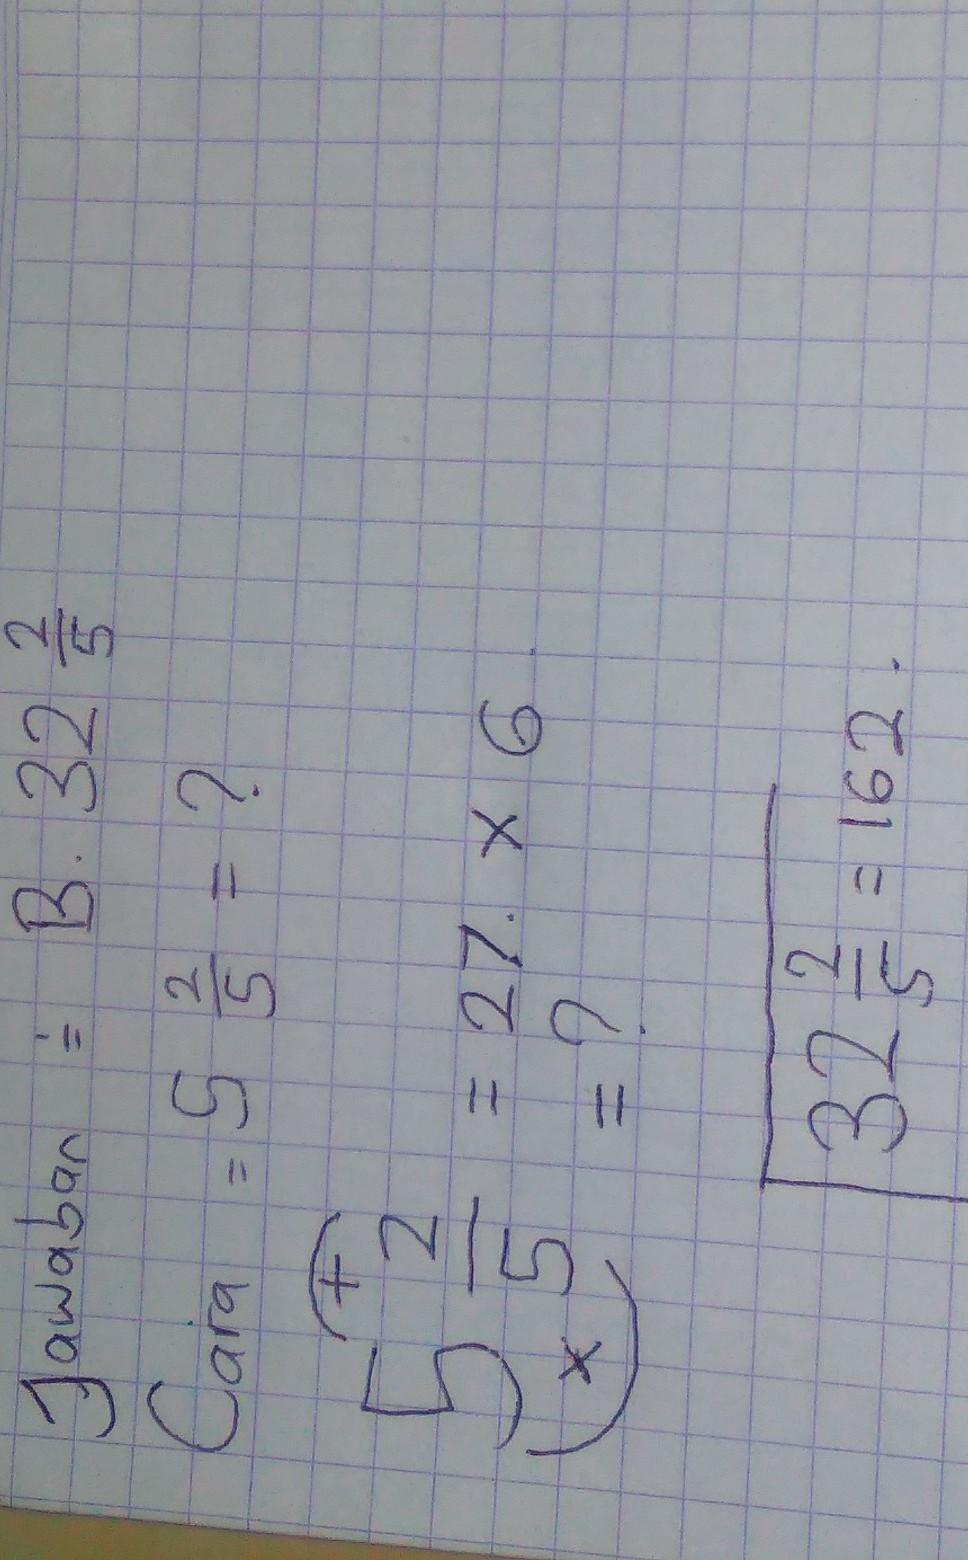 Jawaban = B. 32 2/5
Cara = 5 2/5 = ?
+
5 2/5 = 27. x 6
x = ?
32 2/5 = 162.